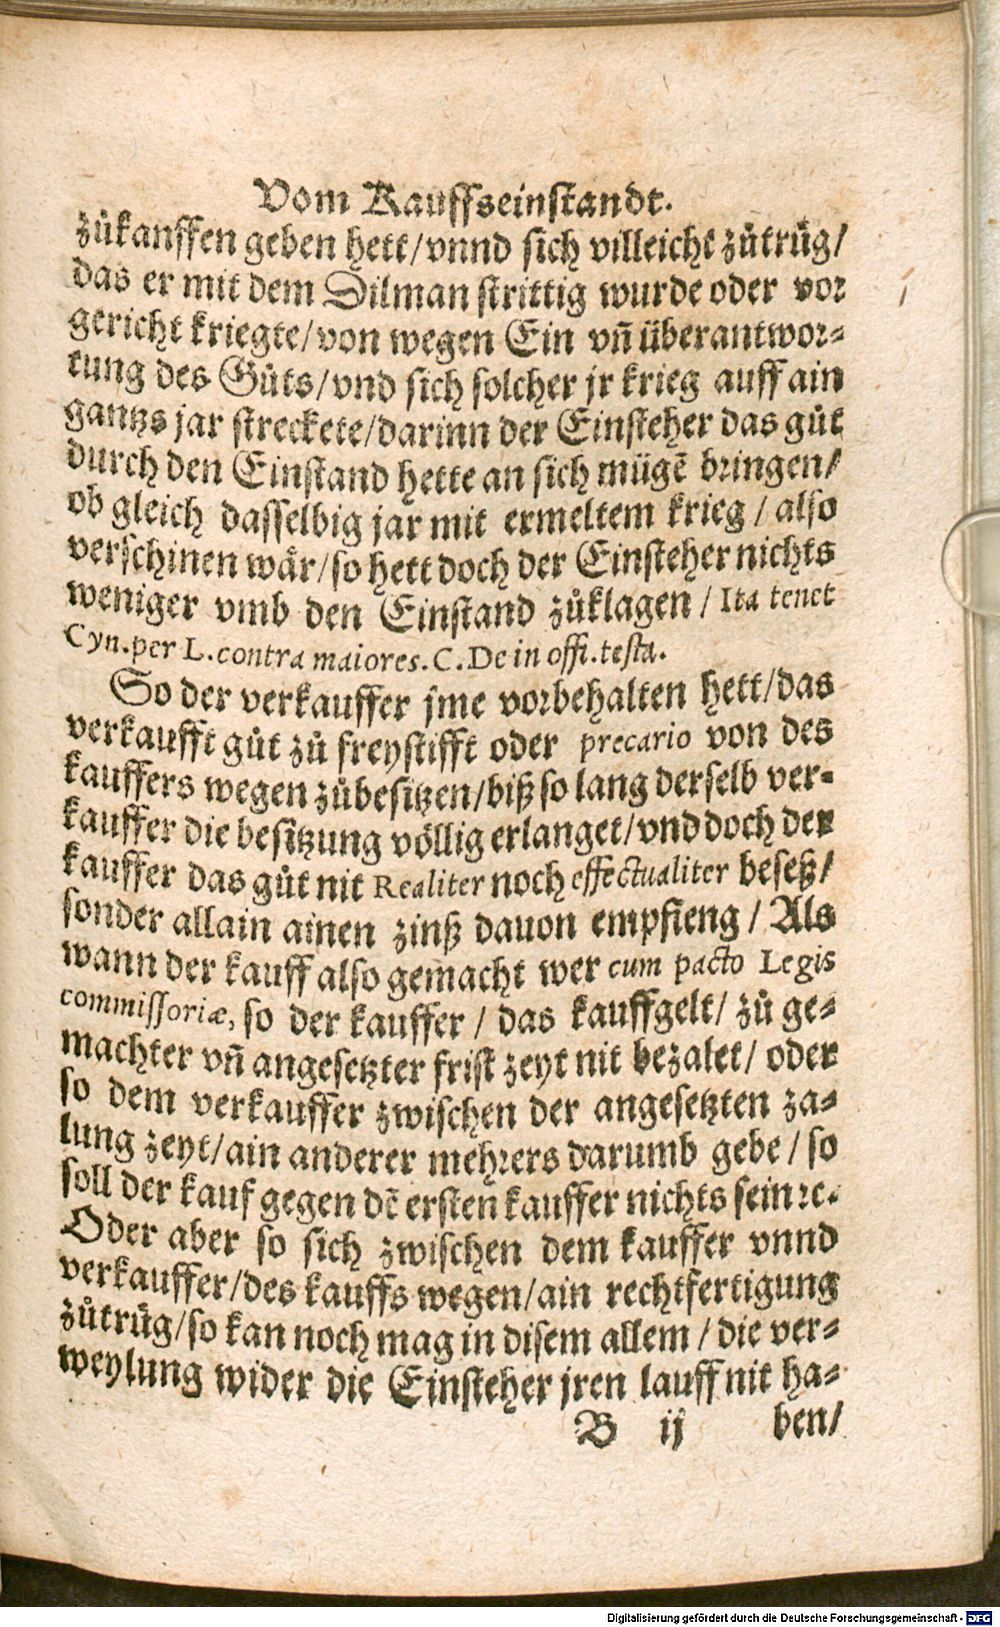 Vom Kauffseinstandt.
zůkanffen geben hett/vnnd sich villeicht zůtrůg/
das er mit dem Dilman strittig wurde oder vor
gericht kriegte/von wegen Ein vñ überantwor-
tung des Gůts/vnd sich solcher jr krieg auff ain
gantzs jar streckete/darinn der Einsteher das gůt
durch den Einstand hette an sich mügẽ bringen/
ob gleich dasselbig jar mit ermeltem krieg / also
verschinen wår/so hett doch der Einsteher nichts
weniger vmb den Einstand zůklagen / Ita tenet
Cyn.per L.contra maiores.C.De in offi.testa.
So der verkauffer jme vorbehalten hett/das
verkaufft gůt zů freystifft oder precario von des
kauffers wegen zůbesitzen/biß so lang derselb ver-
kauffer die besitzung völlig erlanget/vnd doch der
kauffer das gůt nit Realiter noch effectualiter beseß/
sonder allain ainen zinß dauon empfieng / Als
wann der kauff also gemacht wer cum pacto Legis
commissoriæ, so der kauffer / das kauffgelt/ zů ge-
machter vñ angesetzter frist zeyt nit bezalet/ oder
so dem verkauffer zwischen der angesetzten za-
lung zeyt/ain anderer mehrers darumb gebe / so
soll der kauf gegen dẽ ersten kauffer nichts sein ꝛc.
Oder aber so sich zwischen dem kauffer vnnd
verkauffer/des kauffs wegen/ain rechtfertigung
zůtrůg/so kan noch mag in disem allem / die ver-
weylung wider die Einsteher jren lauff nit ha-
B ij ben/
Digitalisierung gefördert durch die Deutsche Forschungsgemeinschaft - DFG